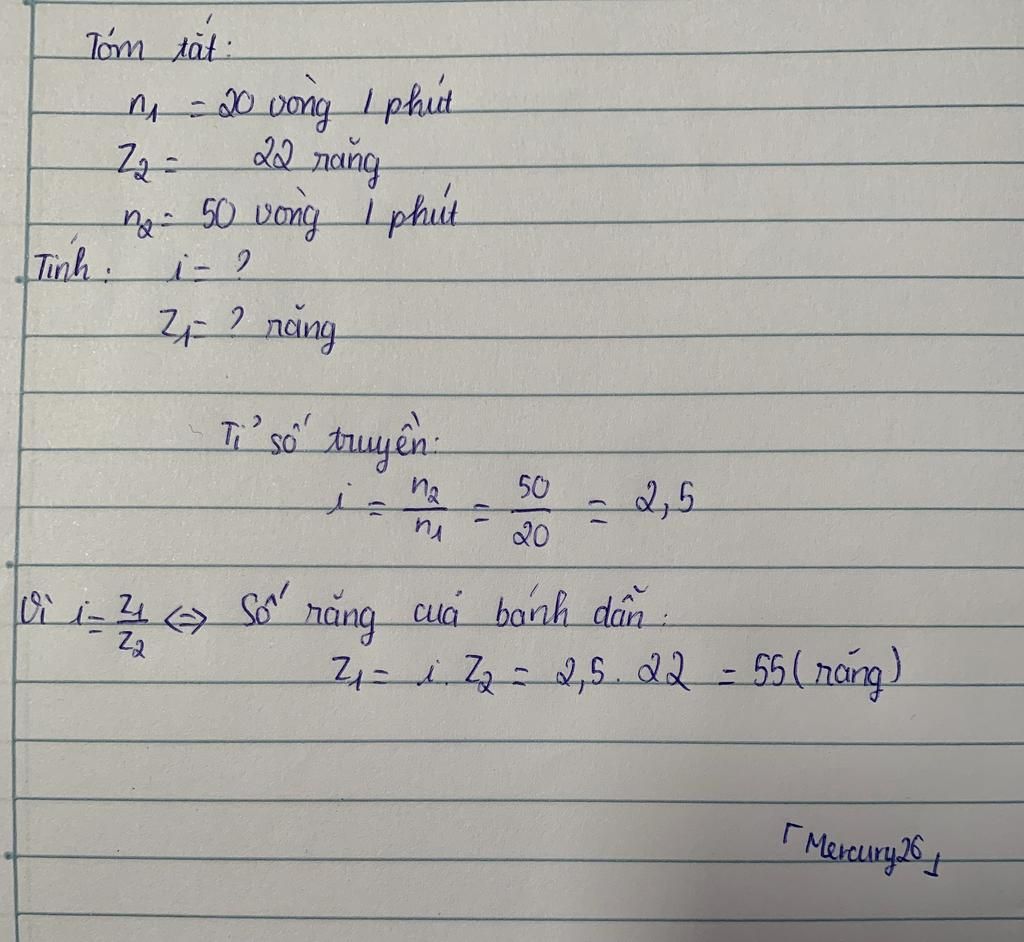 Tóm tắt:
n₁ = 20 vòng / phút
Z₂ = 22 răng
n₂ = 50 vòng / phút
Tính: i = ?
Z₁ = ? răng
Tỉ số truyền:
i = n₂/n₁ = 50/20 = 2,5
Vì i = Z₁/Z₂ ⇔ Số răng cuả bánh dẫn:
Z₁ = i. Z₂ = 2,5. 22 = 55 (răng)
「Mercury26」